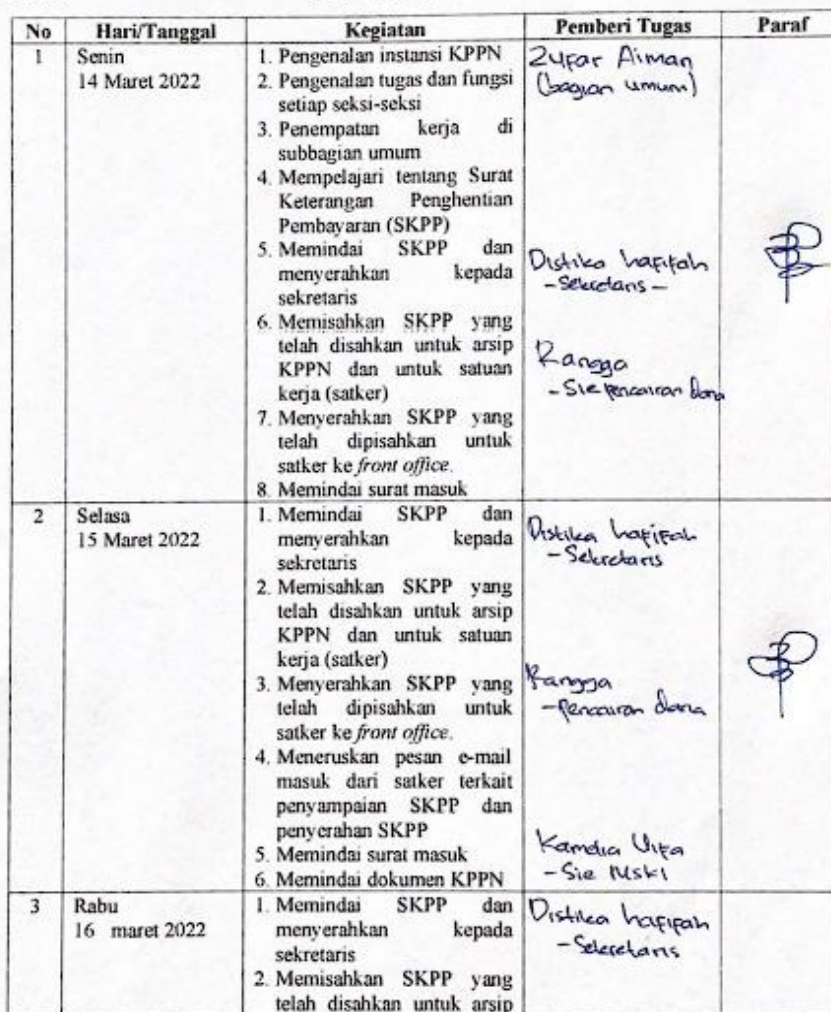 No Hari/Tanggal Kegiatan Pemberi Tugas Paraf
1 Senin
14 Maret 2022
1. Pengenalan instansi KPPN
2. Pengenalan tugas dan fungsi
setiap seksi-seksi
3. Penempatan kerja di
subbagian umum
4. Mempelajari tentang Surat
Keterangan Penghentian
Pembayaran (SKPP)
5. Memindai SKPP dan
menyerahkan kepada
sekretaris
6. Memisahkan SKPP yang
telah disahkan untuk arsip
KPPN dan untuk satuan
kerja (satker)
7. Menyerahkan SKPP yang
telah dipisahkan untuk
satker ke front office.
8. Memindai surat masuk
Zufar Aiman
(bagian umum)
Distika hafifah
- Sekretaris -
Rangga
- Sie pencairan dana
2 Selasa
15 Maret 2022
1. Memindai SKPP dan
menyerahkan kepada
sekretaris
2. Memisahkan SKPP yang
telah disahkan untuk arsip
KPPN dan untuk satuan
kerja (satker)
3. Menyerahkan SKPP yang
telah dipisahkan untuk
satker ke front office.
4. Meneruskan pesan e-mail
masuk dari satker terkait
penyampaian SKPP dan
penyerahan SKPP
5. Memindai surat masuk
6. Memindai dokumen KPPN
Distika hafifah
- Sekretaris
Rangga
- pencairan dana
- Sie MSKI
3 Rabu
16 maret 2022
1. Memindai SKPP dan
menyerahkan kepada
sekretaris
2. Memisahkan SKPP yang
telah disahkan untuk arsip
Distika hafifah
- Sekretaris